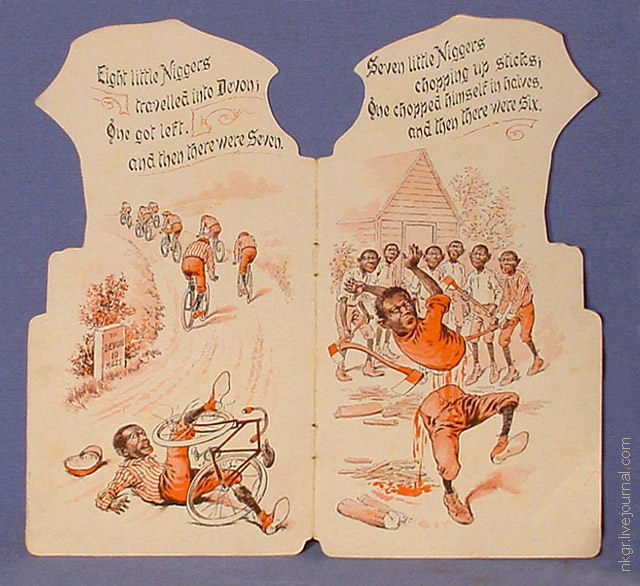 Eight little Niggers
travelled into Devon;
One got left.
and then there were Seven.
Seven little Niggers
chopping up sticks;
One chopped himself in halves.
and then there were Six.
nkgr.livejournal.com